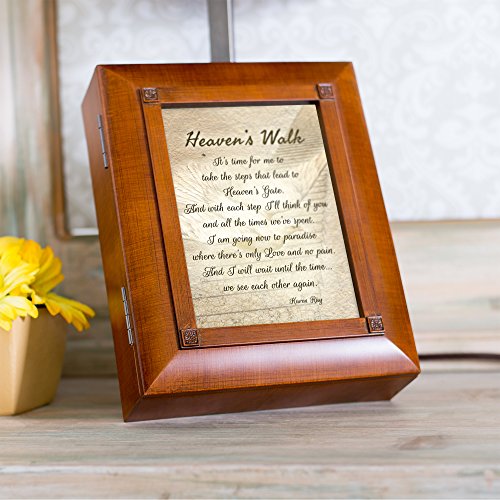 Heaven's Walk
It's time for me to
take the steps that lead to
Heaven's Gate.
And with each step I'll think of you
and all the times we've spent.
I am going now to paradise
where there's only Love and no pain.
And I will wait until the time...
we see each other again.
Karen Ray